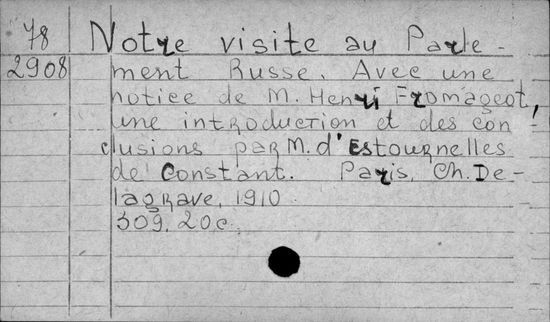 78 Notre visite au Parle-
2908 ment Russe. Avec une
notice de M. Henri Fromageot,
une introduction et des con
clusions par M. d'Estournelles
de Constant. Paris, Ch. De-
lagrave, 1910.
309, 20 c.